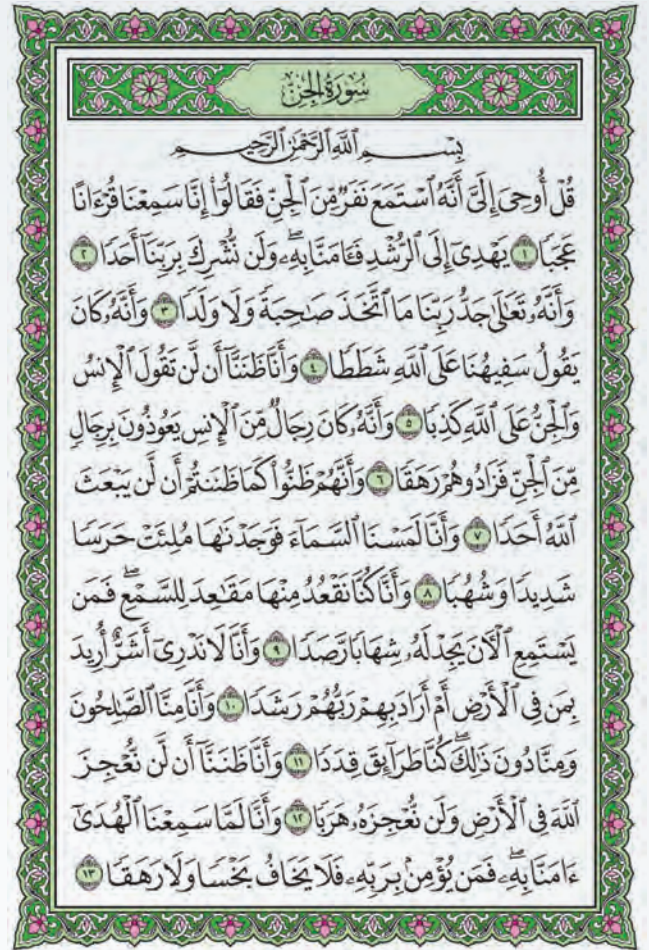 سُورَةُ الْجِنِّ
بِسْمِ ٱللَّهِ ٱلرَّحْمَٰنِ ٱلرَّحِيمِ
قُلْ أُوحِىَ إِلَىَّ أَنَّهُ ٱسْتَمَعَ نَفَرٌ مِّنَ ٱلْجِنِّ فَقَالُوٓا۟ إِنَّا سَمِعْنَا قُرْءَانًا
عَجَبًا ١ يَهْدِىٓ إِلَى ٱلرُّشْدِ فَـَٔامَنَّا بِهِۦ ۖ وَلَن نُّشْرِكَ بِرَبِّنَآ أَحَدًا ٢
وَأَنَّهُۥ تَعَٰلَىٰ جَدُّ رَبِّنَا مَا ٱتَّخَذَ صَٰحِبَةً وَلَا وَلَدًا ٣ وَأَنَّهُۥ كَانَ
يَقُولُ سَفِيهُنَا عَلَى ٱللَّهِ شَطَطًا ٤ وَأَنَّا ظَنَنَّآ أَن لَّن تَقُولَ ٱلْإِنسُ
وَٱلْجِنُّ عَلَى ٱللَّهِ كَذِبًا ٥ وَأَنَّهُۥ كَانَ رِجَالٌ مِّنَ ٱلْإِنسِ يَعُوذُونَ بِرِجَالٍ
مِّنَ ٱلْجِنِّ فَزَادُوهُمْ رَهَقًا ٦ وَأَنَّهُمْ ظَنُّوا۟ كَمَا ظَنَنتُمْ أَن لَّن يَبْعَثَ
ٱللَّهُ أَحَدًا ٧ وَأَنَّا لَمَسْنَا ٱلسَّمَآءَ فَوَجَدْنَٰهَا مُلِئَتْ حَرَسًا
شَدِيدًا وَشُهُبًا ٨ وَأَنَّا كُنَّا نَقْعُدُ مِنْهَا مَقَٰعِدَ لِلسَّمْعِ ۖ فَمَن
يَسْتَمِعِ ٱلْـَٔانَ يَجِدْ لَهُۥ شِهَابًا رَّصَدًا ٩ وَأَنَّا لَا نَدْرِىٓ أَشَرٌّ أُرِيدَ
بِمَن فِى ٱلْأَرْضِ أَمْ أَرَادَ بِهِمْ رَبُّهُمْ رَشَدًا ١٠ وَأَنَّا مِنَّا ٱلصَّٰلِحُونَ
وَمِنَّا دُونَ ذَٰلِكَ ۖ كُنَّا طَرَآئِقَ قِدَدًا ١١ وَأَنَّا ظَنَنَّآ أَن لَّن نُّعْجِزَ
ٱللَّهَ فِى ٱلْأَرْضِ وَلَن نُّعْجِزَهُۥ هَرَبًا ١٢ وَأَنَّا لَمَّا سَمِعْنَا ٱلْهُدَىٰٓ
ءَامَنَّا بِهِۦ ۖ فَمَن يُؤْمِنۢ بِرَبِّهِۦ فَلَا يَخَافُ بَخْسًا وَلَا رَهَقًا ١٣